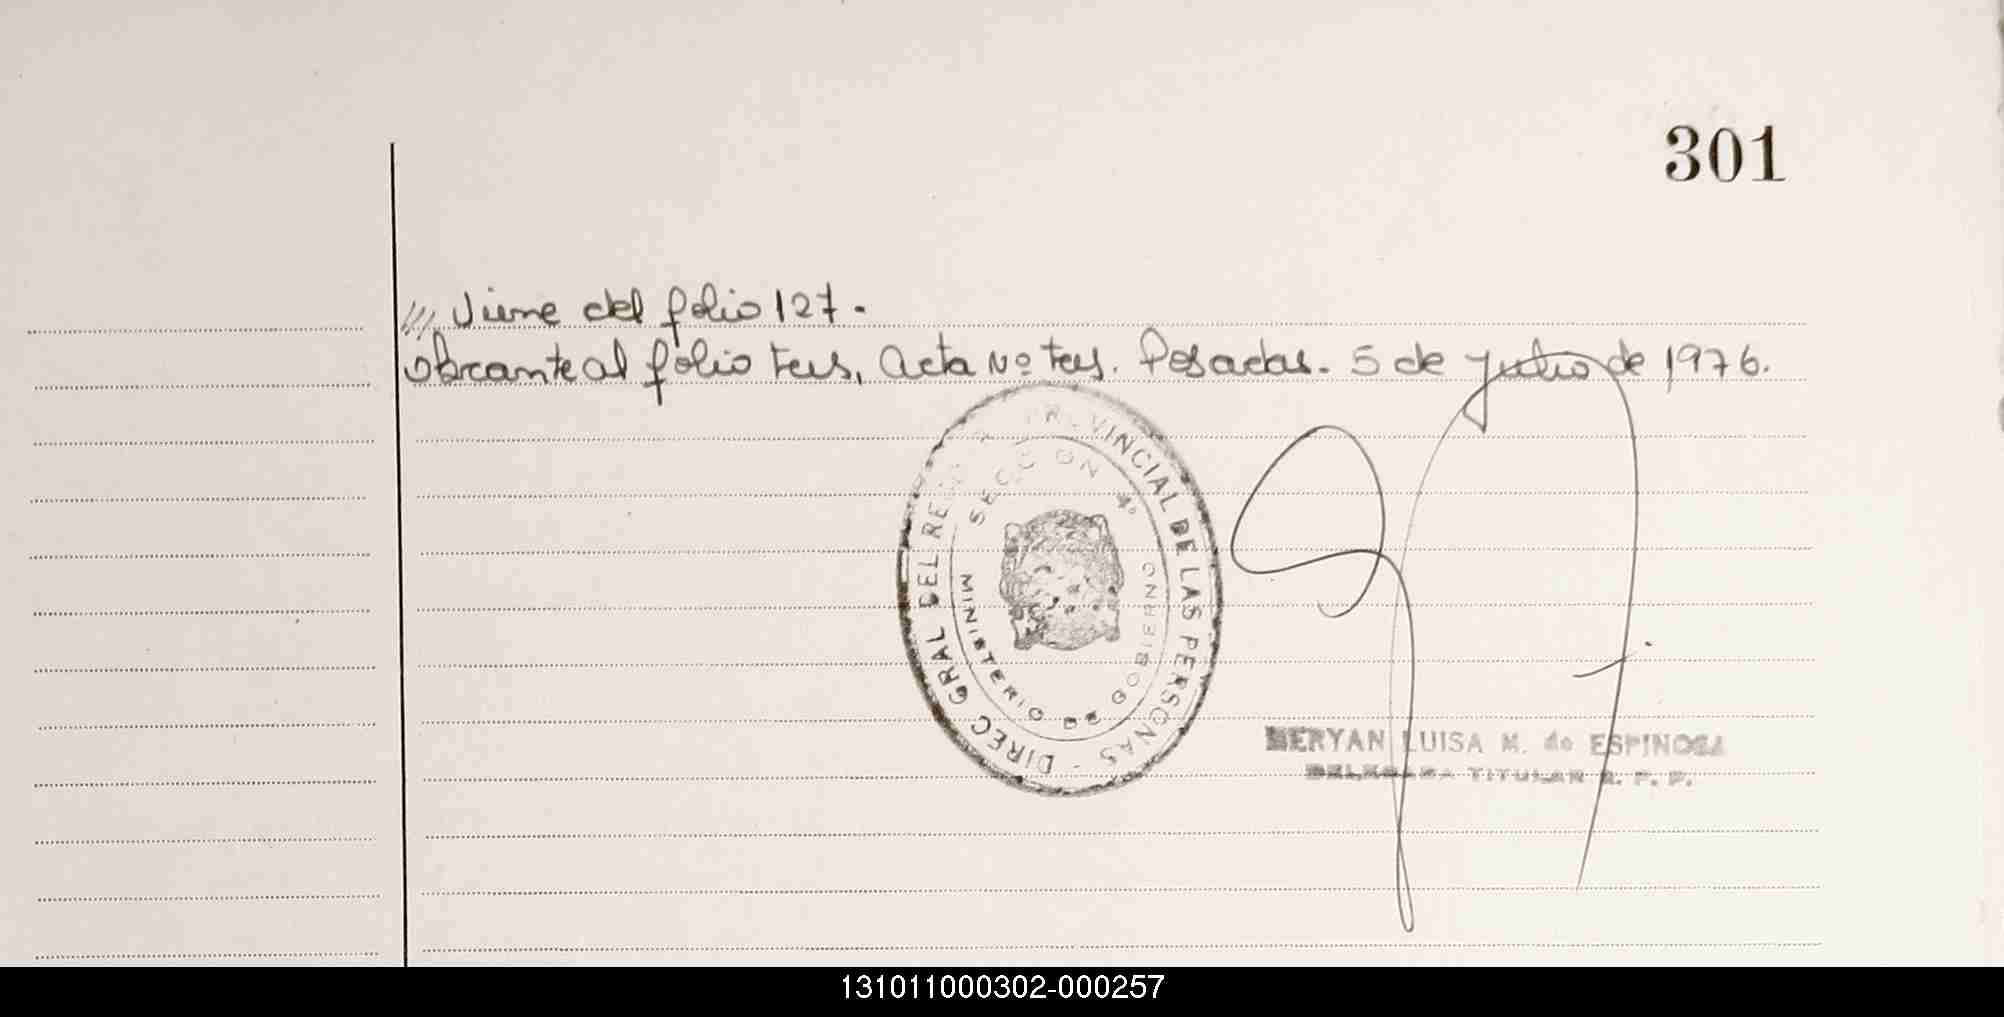 301
/// Viene del folio 127.
obrante al folio tres, Acta Nº tres. Posadas. 5 de julio de 1976.
DIREC GRAL DEL REG PROVINCIAL DE LAS PERSONAS -
SECCION 4º
MINISTERIO DE GOBIERNO
MERYAN LUISA M. de ESPINOSA
DELEGADA TITULAR R. P. P.
131011000302-000257